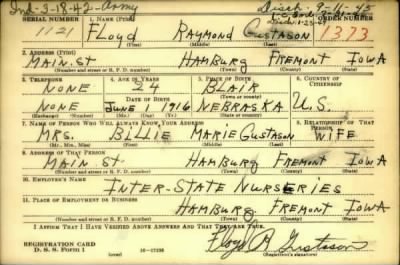 Ind-3-18-42-Army Disch. 9-16-45
SERIAL NUMBER 1. NAME (Print) ORDER NUMBER
1121 FLOYD RAYMOND GUSTASON 1373
(First) (Middle) (Last)
2. ADDRESS (Print)
MAIN.ST HAMBURG FREMONT IOWA
(Number and street or R. F. D. number) (Town) (County) (State)
3. TELEPHONE 4. AGE IN YEARS 5. PLACE OF BIRTH 6. COUNTRY OF CITIZENSHIP
NONE 24 BLAIR
DATE OF BIRTH (Town or county)
NONE JUNE 1 1916 NEBRASKA U.S.
(Mo.) (Day) (Yr.) (State or country)
7. NAME OF PERSON WHO WILL ALWAYS KNOW YOUR ADDRESS 8. RELATIONSHIP OF THAT PERSON
MRS. BILLIE MARIE GUSTASON WIFE
(Mr., Mrs., Miss) (First) (Middle) (Last)
9. ADDRESS OF THAT PERSON
MAIN ST HAMBURG FREMONT IOWA
(Number and street or R. F. D. number) (Town) (County) (State)
10. EMPLOYER'S NAME
INTER-STATE NURSERIES
11. PLACE OF EMPLOYMENT OR BUSINESS
HAMBURG FREMONT IOWA
(Number and street or R. F. D. number) (Town) (County) (State)
I AFFIRM THAT I HAVE VERIFIED ABOVE ANSWERS AND THAT THEY ARE TRUE.
REGISTRATION CARD
D. S. S. Form 1 Floyd R Gustason
(Registrant's signature)